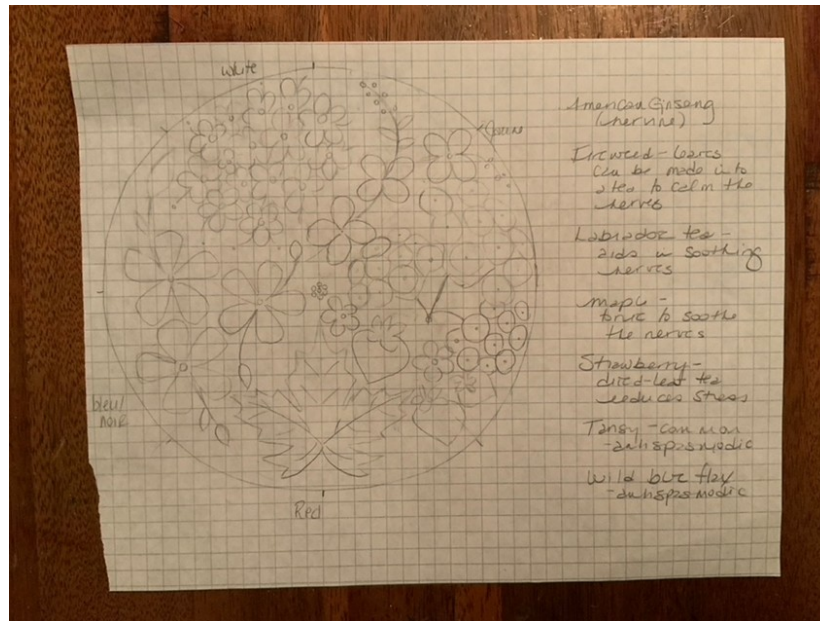 white
Jaune
bleu/
noir
Red
American Ginseng
(nervine)
Fireweed - leaves
can be made into
a tea to calm the
nerves
Labrador tea -
aids in soothing
nerves
maple -
tonic to soothe
the nerves
Strawberry -
dried-leaf tea
reduces stress
Tansy - common
- antispasmodic
Wild blue flag
- antispasmodic